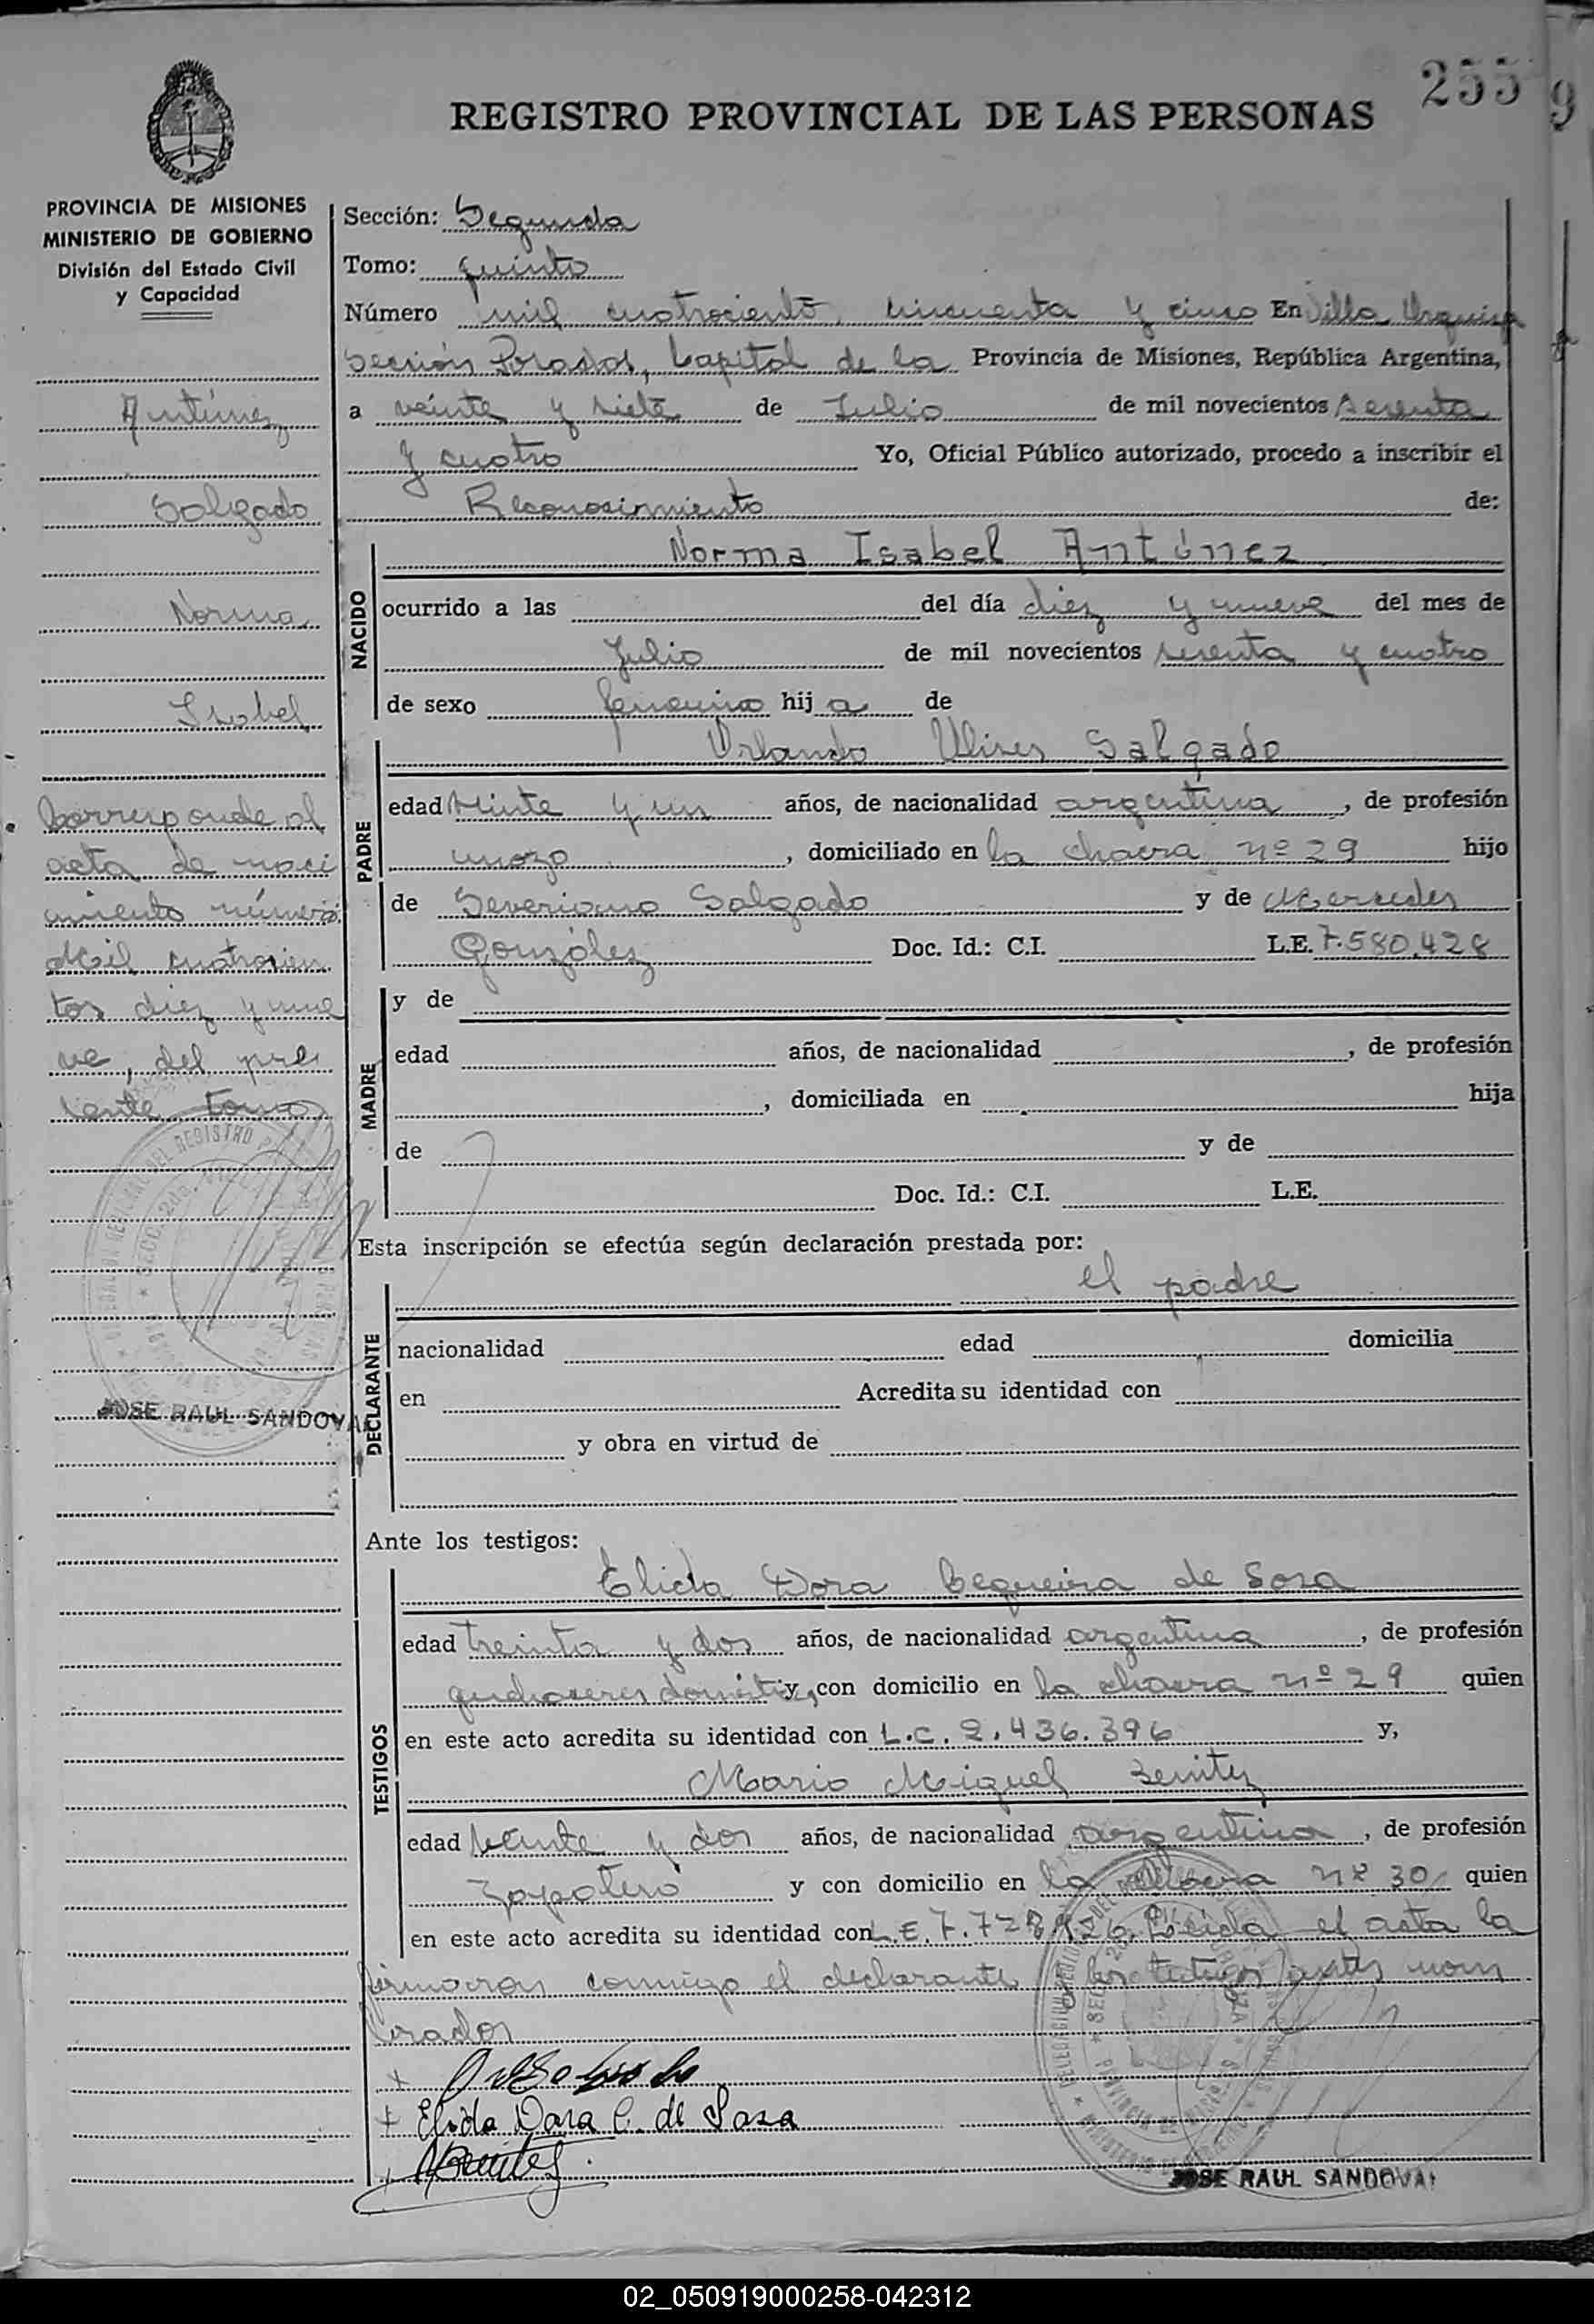 255
9
REGISTRO PROVINCIAL DE LAS PERSONAS
PROVINCIA DE MISIONES
MINISTERIO DE GOBIERNO
División del Estado Civil
y Capacidad
Antúnez
Salgado
Norma
Isabel
Corresponde al
acta de naci
miento número
Mil cuatrocien
tos diez y nue
ve, del pre
sente tomo
JOSE RAUL SANDOVAL
Sección: Segunda
Tomo: quinto
Número mil cuatrociento cincuenta y cinco En Villa Urquiza
Sección Posadas, Capital de la Provincia de Misiones, República Argentina,
a veinte y siete de Julio de mil novecientos sesenta
y cuatro Yo, Oficial Público autorizado, procedo a inscribir el
Reconocimiento de:
NACIDO
Norma Isabel Antúnez
ocurrido a las del día diez y nueve del mes de
Julio de mil novecientos sesenta y cuatro
de sexo femenino hij a de
PADRE
Orlando Ulises Salgado
edad veinte y un años, de nacionalidad argentina, de profesión
mozo, domiciliado en la chacra nº 29 hijo
de Severiano Salgado y de Mercedes
González Doc. Id.: C.I. L.E. 7.580.428
MADRE
y de
edad años, de nacionalidad , de profesión
, domiciliada en hija
de y de
Doc. Id.: C.I. L.E.
Esta inscripción se efectúa según declaración prestada por:
DECLARANTE
el padre
nacionalidad edad domicilia
en Acredita su identidad con
y obra en virtud de
Ante los testigos:
TESTIGOS
Elida Dora Cequeira de Sosa
edad treinta y dos años, de nacionalidad argentina, de profesión
quehaceres domésticy, con domicilio en la chacra nº 29 quien
en este acto acredita su identidad con L.C. 2.436.396 y,
Mario Miguel Benitez
edad veinte y dos años, de nacionalidad argentina, de profesión
zapatero y con domicilio en la chacra nº 30 quien
en este acto acredita su identidad con L.E. 7.728.926. Leída el acta la
firmaron conmigo el declarante y los testigos antes nom
brados
Elida Dora C. de Sosa
Benitez
JOSE RAUL SANDOVAL
02_050919000258-042312